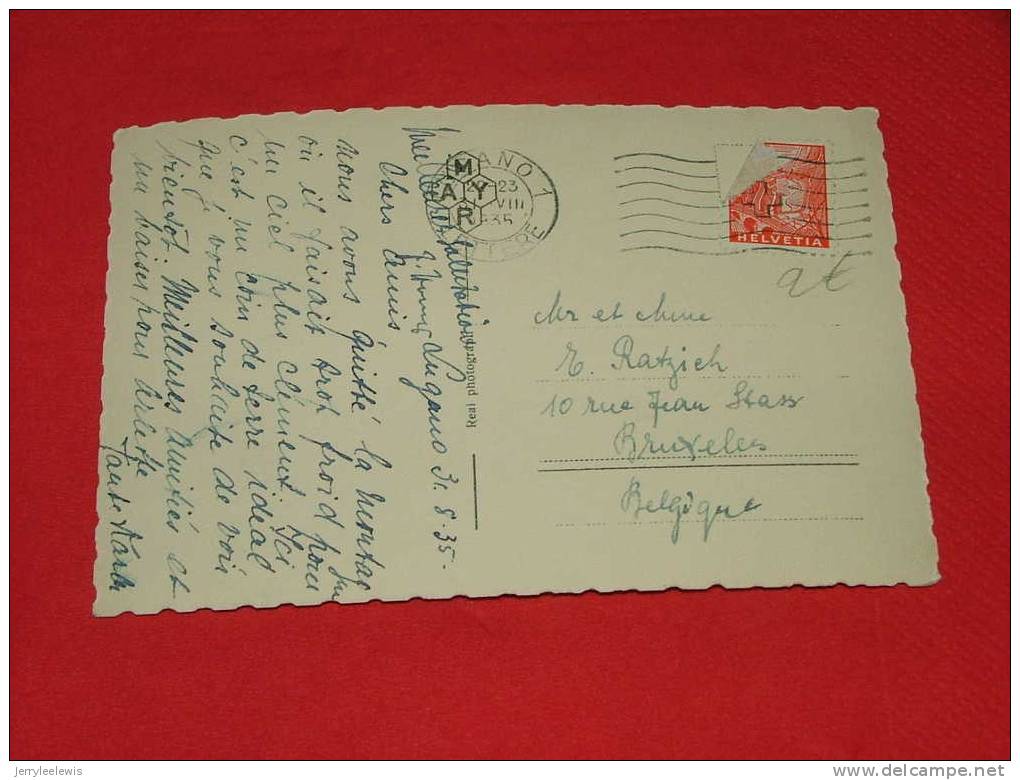 Lugano 31.8.35.
Chers Amis
nous avons quitté la montag
où il faisait trop froid pour
un ciel plus clément. Ici
c'est un coin de terre idéal
que je vous souhaite de voir
bientôt. Meilleures Amitiés et
un baiser pour Arlette
Tante
Real photograph
MAYR
ANO 1
23
VIII
1935
HELVETIA
Mr et Mme
E. Ratzich
10 rue Jean Stass
Bruxelles
Belgique
jerryleelewis
http://www.delcampe.net